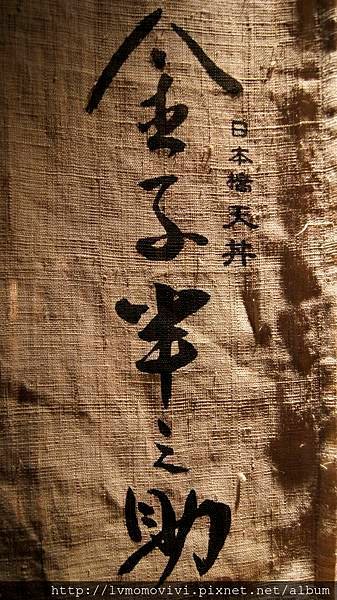 日本橋天丼
金子半之助
http://lvmomovivi.pixnet.net/album